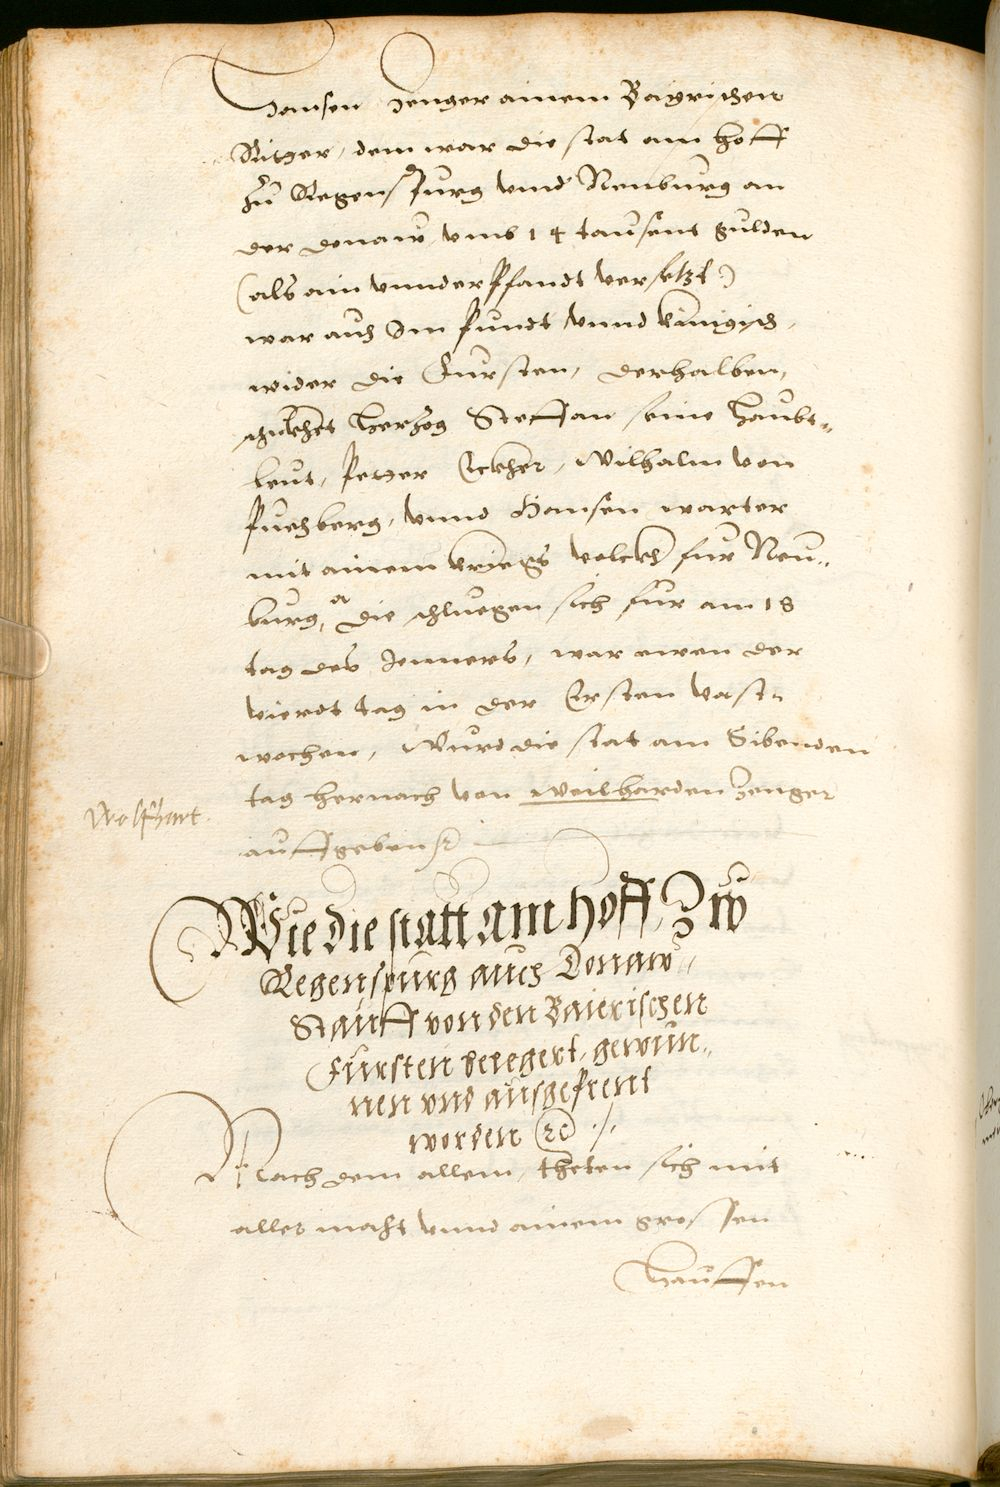 Hansen Zenger ainem Bayrischen
Ritter, dem war die stat am hoff
zu Regenspurg vnnd Neuburg an
der donaw vmb 14 tausent gulden
(als ain vnnderpfandt versetzt)
war auch Im pundt vnnd ainigich,
wider die Fursten, derhalben,
schickhet Hertzog Steffan seine Haubt=
leut, Petter Eckher, Wilhalm von
Puechberg, vnnd Hansen warter
mit ainem kriegs volckh fur Neu=
burg, die schluegen sich fur am 18
tag des Jenners, war ewen der
vierdt tag in der Ersten vast=
wochen, Wurd die stat am Sibenden
tag hernach von Weilharden Zenger
Wolfhart.
auffgeben
Wie die statt am hoff, Zw
Regenspurg auch Donaw=
Stauff von den Baierischen
Fursten belegert, gewun=
nen vnd ausgeprent
worden ꝛc ./.
Nach dem allem, theten sich mit
aller macht vnnd ainem grossen
Hauffen